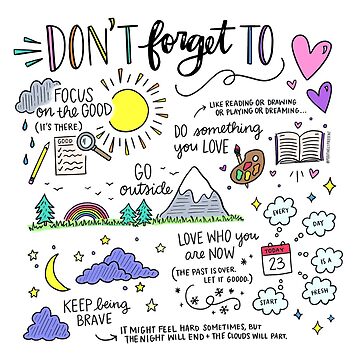 DON'T forget TO
FOCUS
on the GOOD
(IT'S THERE)
GOOD
LIKE READING OR DRAWING
OR PLAYING OR DREAMING...
DO something
you LOVE
GO
outside
LOVE WHO you
are NOW
(THE PAST IS OVER.
LET IT GOOOO.)
EVERY
DAY
IS A
FRESH
START
TODAY
23
KEEP being
BRAVE
IT MIGHT FEEL HARD SOMETIMES, BUT
THE NIGHT WILL END + THE CLOUDS WILL PART.